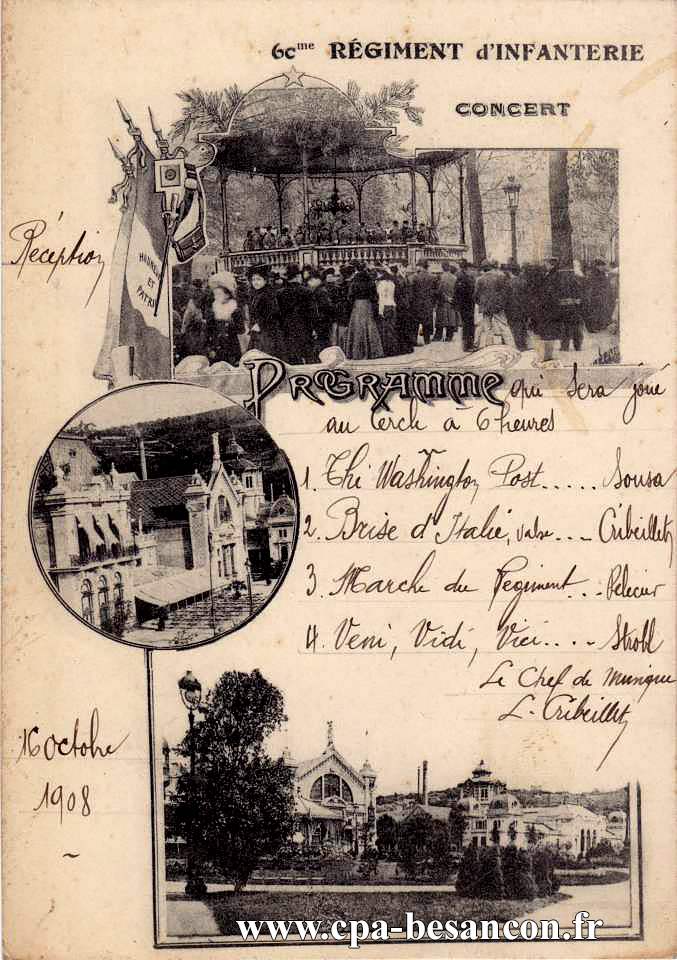 60me RÉGIMENT d'INFANTERIE
CONCERT
HONNEUR
ET
PATRIE
Réception
PROGRAMME qui sera joué
au Cercle à 6 heures
1. The Washington Post ..... Sousa
2. Brise d'Italie, valse ... Cribeillet
3. Marche du Régiment ..
4. Veni, Vidi, Vici .... Strobl
Le Chef de Musique
L. Cribeillet
16 octobre
1908
www.cpa-besancon.fr